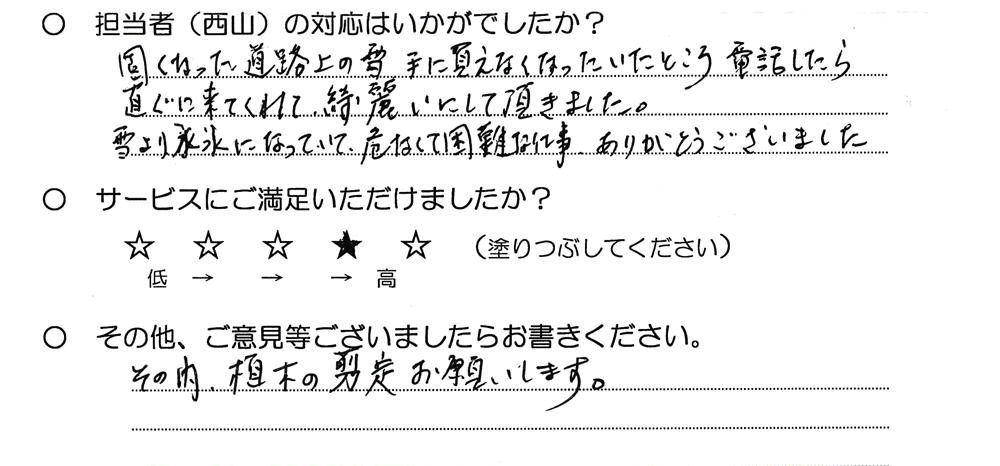 ○ 担当者（西山）の対応はいかがでしたか？
固くなった道路上の雪 手に負えなくなっていたところ 電話したら
直ぐに来てくれて、綺麗いにして頂きました。
雪より氷になっていて、危なくて困難な仕事、ありがとうございました
○ サービスにご満足いただけましたか？
☆ ☆ ☆ ★ ☆ （塗りつぶしてください）
低 → → → 高
○ その他、ご意見等ございましたらお書きください。
その内、植木の剪定お願いします。